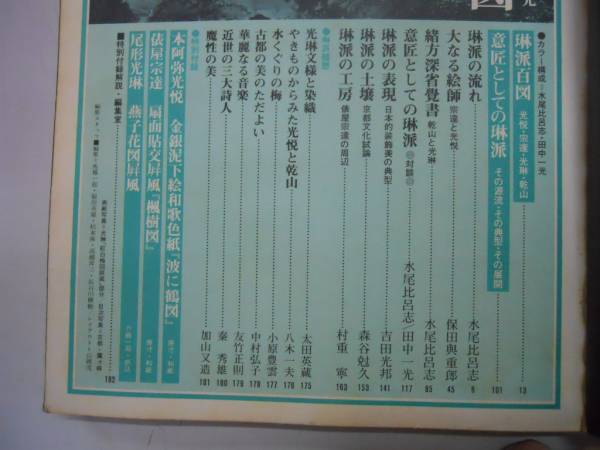 図
光
●カラー構成=水尾比呂志・田中一光
琳派百図 光悦・宗達・光琳・乾山 13
意匠としての琳派 その源流・その典型・その展開 101
琳派の流れ 水尾比呂志 6
大なる絵師 宗達と光悦 保田與重郎 45
緒方深省覺書 乾山と光琳 水尾比呂志 85
意匠としての琳派 対談 水尾比呂志/田中一光 117
琳派の表現 日本的装飾美の典型 吉田光邦 141
琳派の土壌 京都文化試論 森谷尅久 153
琳派の工房 俵屋宗達の周辺 村重 寧 163
光琳文様と染織 太田英蔵 175
やきものからみた光悦と乾山 八木一夫 176
水くぐりの梅 小原豊雲 177
古都の美のただよい 中村弘子 178
華麗なる音楽 友竹正則 179
近世の三大詩人 秦 秀雄 180
魔性の美 加山又造 181
●特別付録
本阿弥光悦 金銀泥下絵和歌色紙『波に鶴図』 原寸・和紙
俵屋宗達 扇面貼交屏風『楓樹図』 原寸・和紙
尾形光琳 燕子花図屏風
■特別付録解説・編集室 182